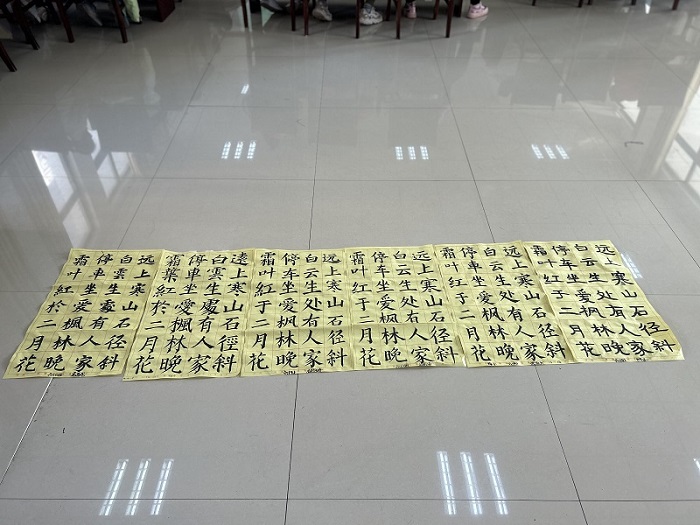 远上寒山石径斜
白雲生處有人家
停車坐愛楓林晚
霜叶紅於二月花
遠上寒山石徑斜
白雲生處有人家
停車坐愛楓林晚
霜葉紅於二月花
远上寒山石径斜
白云生处有人家
停车坐愛枫林晚
霜叶红于二月花
远上寒山石径斜
白云生处有人家
停车坐愛枫林晚
霜叶红于二月花
远上寒山石径斜
白云生处有人家
停車坐愛枫林晚
霜叶红于二月花
远上寒山石径斜
白云生处有人家
停车坐愛枫林晚
霜叶红于二月花